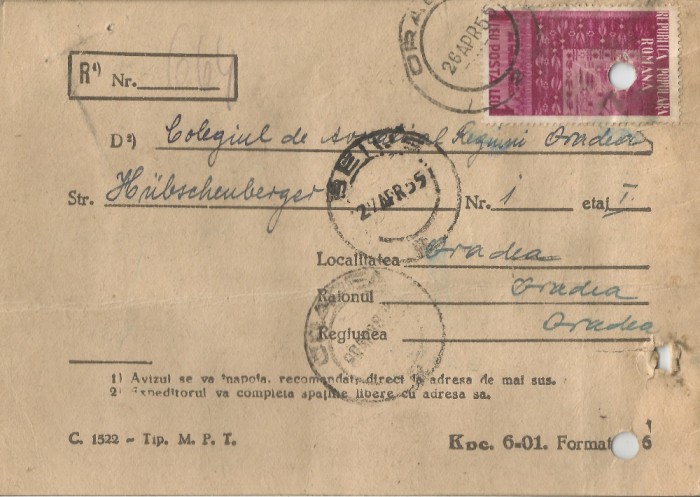 ORA
26 APR 55
REPUBLICA POPULARA
ROMANA
R¹)
Nr.
D²) Colegiul de Regiunii Oradea
BEIUȘ
27 APR 55
Str. Hübschenberger Nr. 1 etaj I.
Localitatea Oradea
Raionul Oradea
Regiunea Oradea
1) Avizul se va înapoia, recomandat, direct la adresa de mai sus.
2) Expeditorul va completa spațiile libere cu adresa sa.
C. 1522 – Tip. M. P. T.
Kpc. 6-01. Format 6